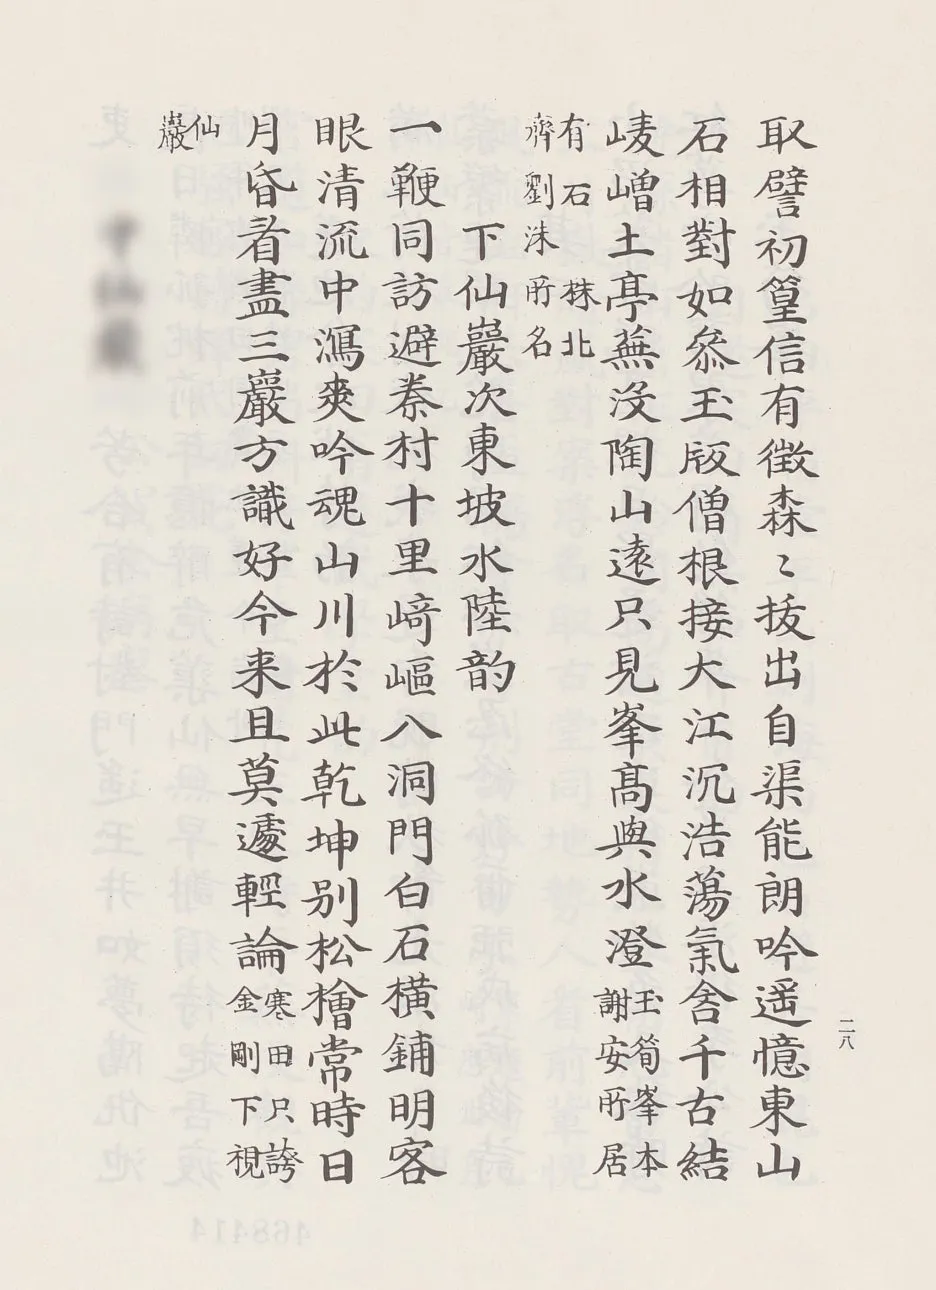 取譬初篁信有徵森〻拔出自渠能朗吟遥憶東山
石相對如叅玉版僧根接大江沉浩蕩氣含千古結
崚嶒土亭蕪沒陶山遠只見峯髙與水澄玉筍峯本謝安所居
有石株北齊劉洙所名
下仙巖次東坡水陸韵
一鞭同訪避秦村十里﨑嶇八洞門白石横鋪明客
眼清流中瀉爽吟魂山川於此乾坤别松檜常時日
月昏看盡三巖方識好今来且莫遽輕論寒田只誇金剛下視
仙巖
二八